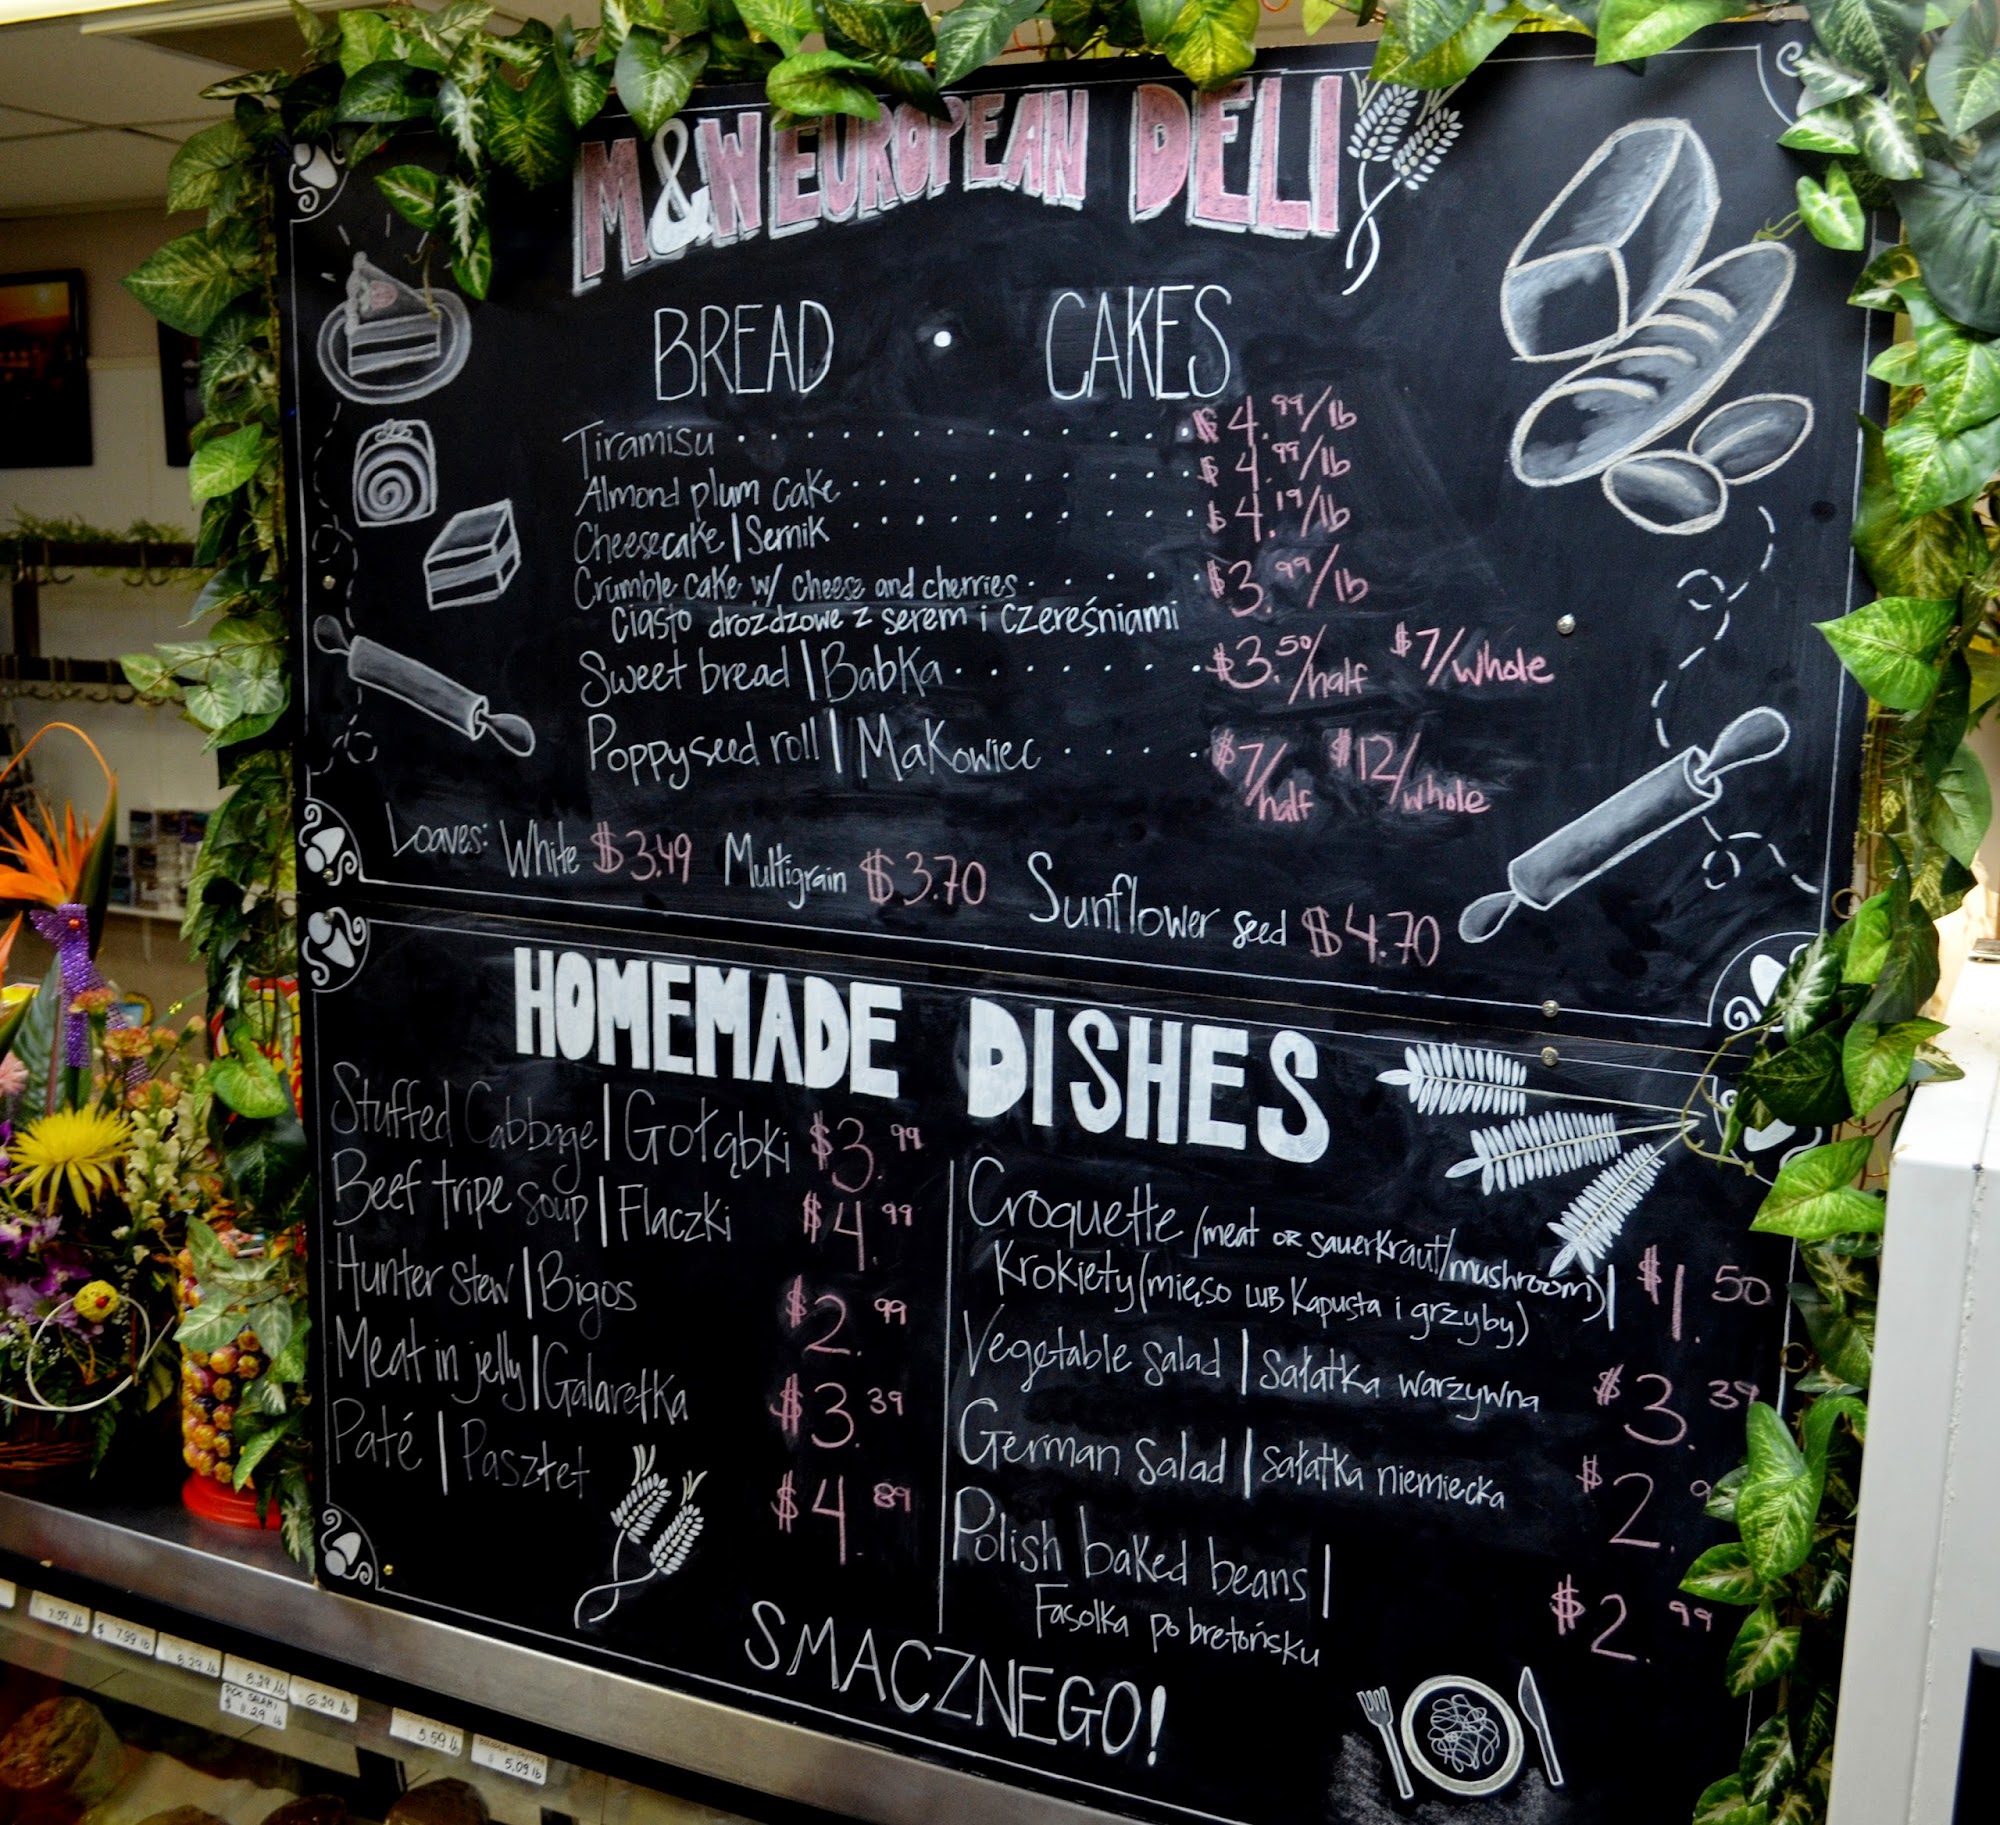 M&W EUROPEAN DELI
BREAD • CAKES
Tiramisu . . . . . . . . . . . . . $4.99/lb
Almond plum cake . . . . . . . . . . $4.99/lb
Cheesecake | Sernik . . . . . . . . . . $4.19/lb
Crumble cake w/ cheese and cherries . . . . . $3.99/lb
Ciasto drożdzowe z serem i czereśniami
Sweet bread | Babka . . . . . . . $3.50/half $7/whole
Poppyseed roll | Makowiec . . . . $7/half $12/whole
Loaves: White $3.49 Multigrain $3.70 Sunflower seed $4.70
HOMEMADE DISHES
Stuffed Cabbage | Gołąbki $3.99
Beef tripe soup | Flaczki $4.99
Hunter stew | Bigos $2.99
Meat in jelly | Galaretka $3.39
Paté | Pasztet $4.89
Croquette (meat OR sauerkraut/mushroom) | $1.50
Krokiety (mięso LUB kapusta i grzyby)
Vegetable salad | Sałatka warzywna $3.39
German salad | Sałatka niemiecka $2.9
Polish baked beans | $2.99
Fasolka po bretońsku
SMACZNEGO!
7.59 lb
$ 7.99 lb
8.29 lb
8.29 lb
$ 11.29 lb
6.29 lb
5.59 lb
$ 5.09 lb